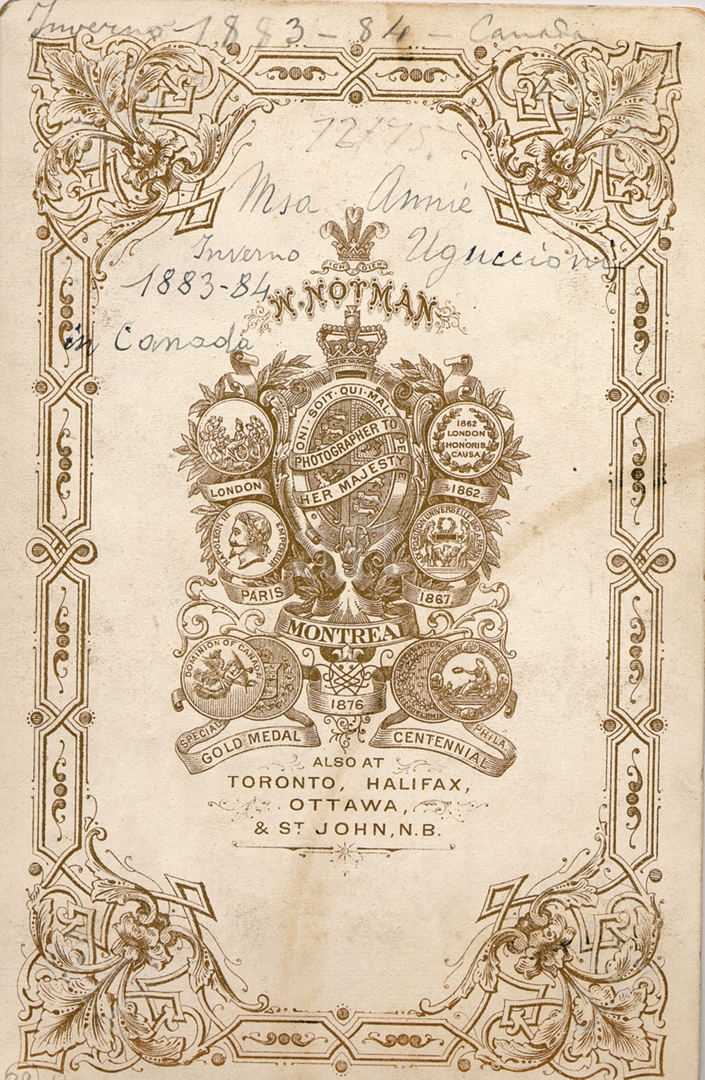 Inverno 1883-84 - Canada
Msa Annie
Inverno Uguccioni
1883-84
in Canada
ICH DIEN
W. NOTMAN
ONI·SOIT·QUI·MAL·
PE
PHOTOGRAPHER TO
HER MAJESTY
LONDON
1862
LONDON
HONORIS
CAUSA
1862
NAPOLEON III EMPEREUR
EXPOSITION UNIVERSELLE
PARIS
1867
MONTREAL
DOMINION OF CANADA
1876
SPECIAL
GOLD MEDAL
CENTENNIAL
PHILA
ALSO AT
TORONTO, HALIFAX,
OTTAWA,
& ST JOHN, N.B.